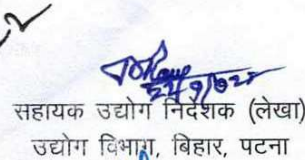 सहायक उद्योग निदेशक (लेखा)
उद्योग विभाग, बिहार, पटना